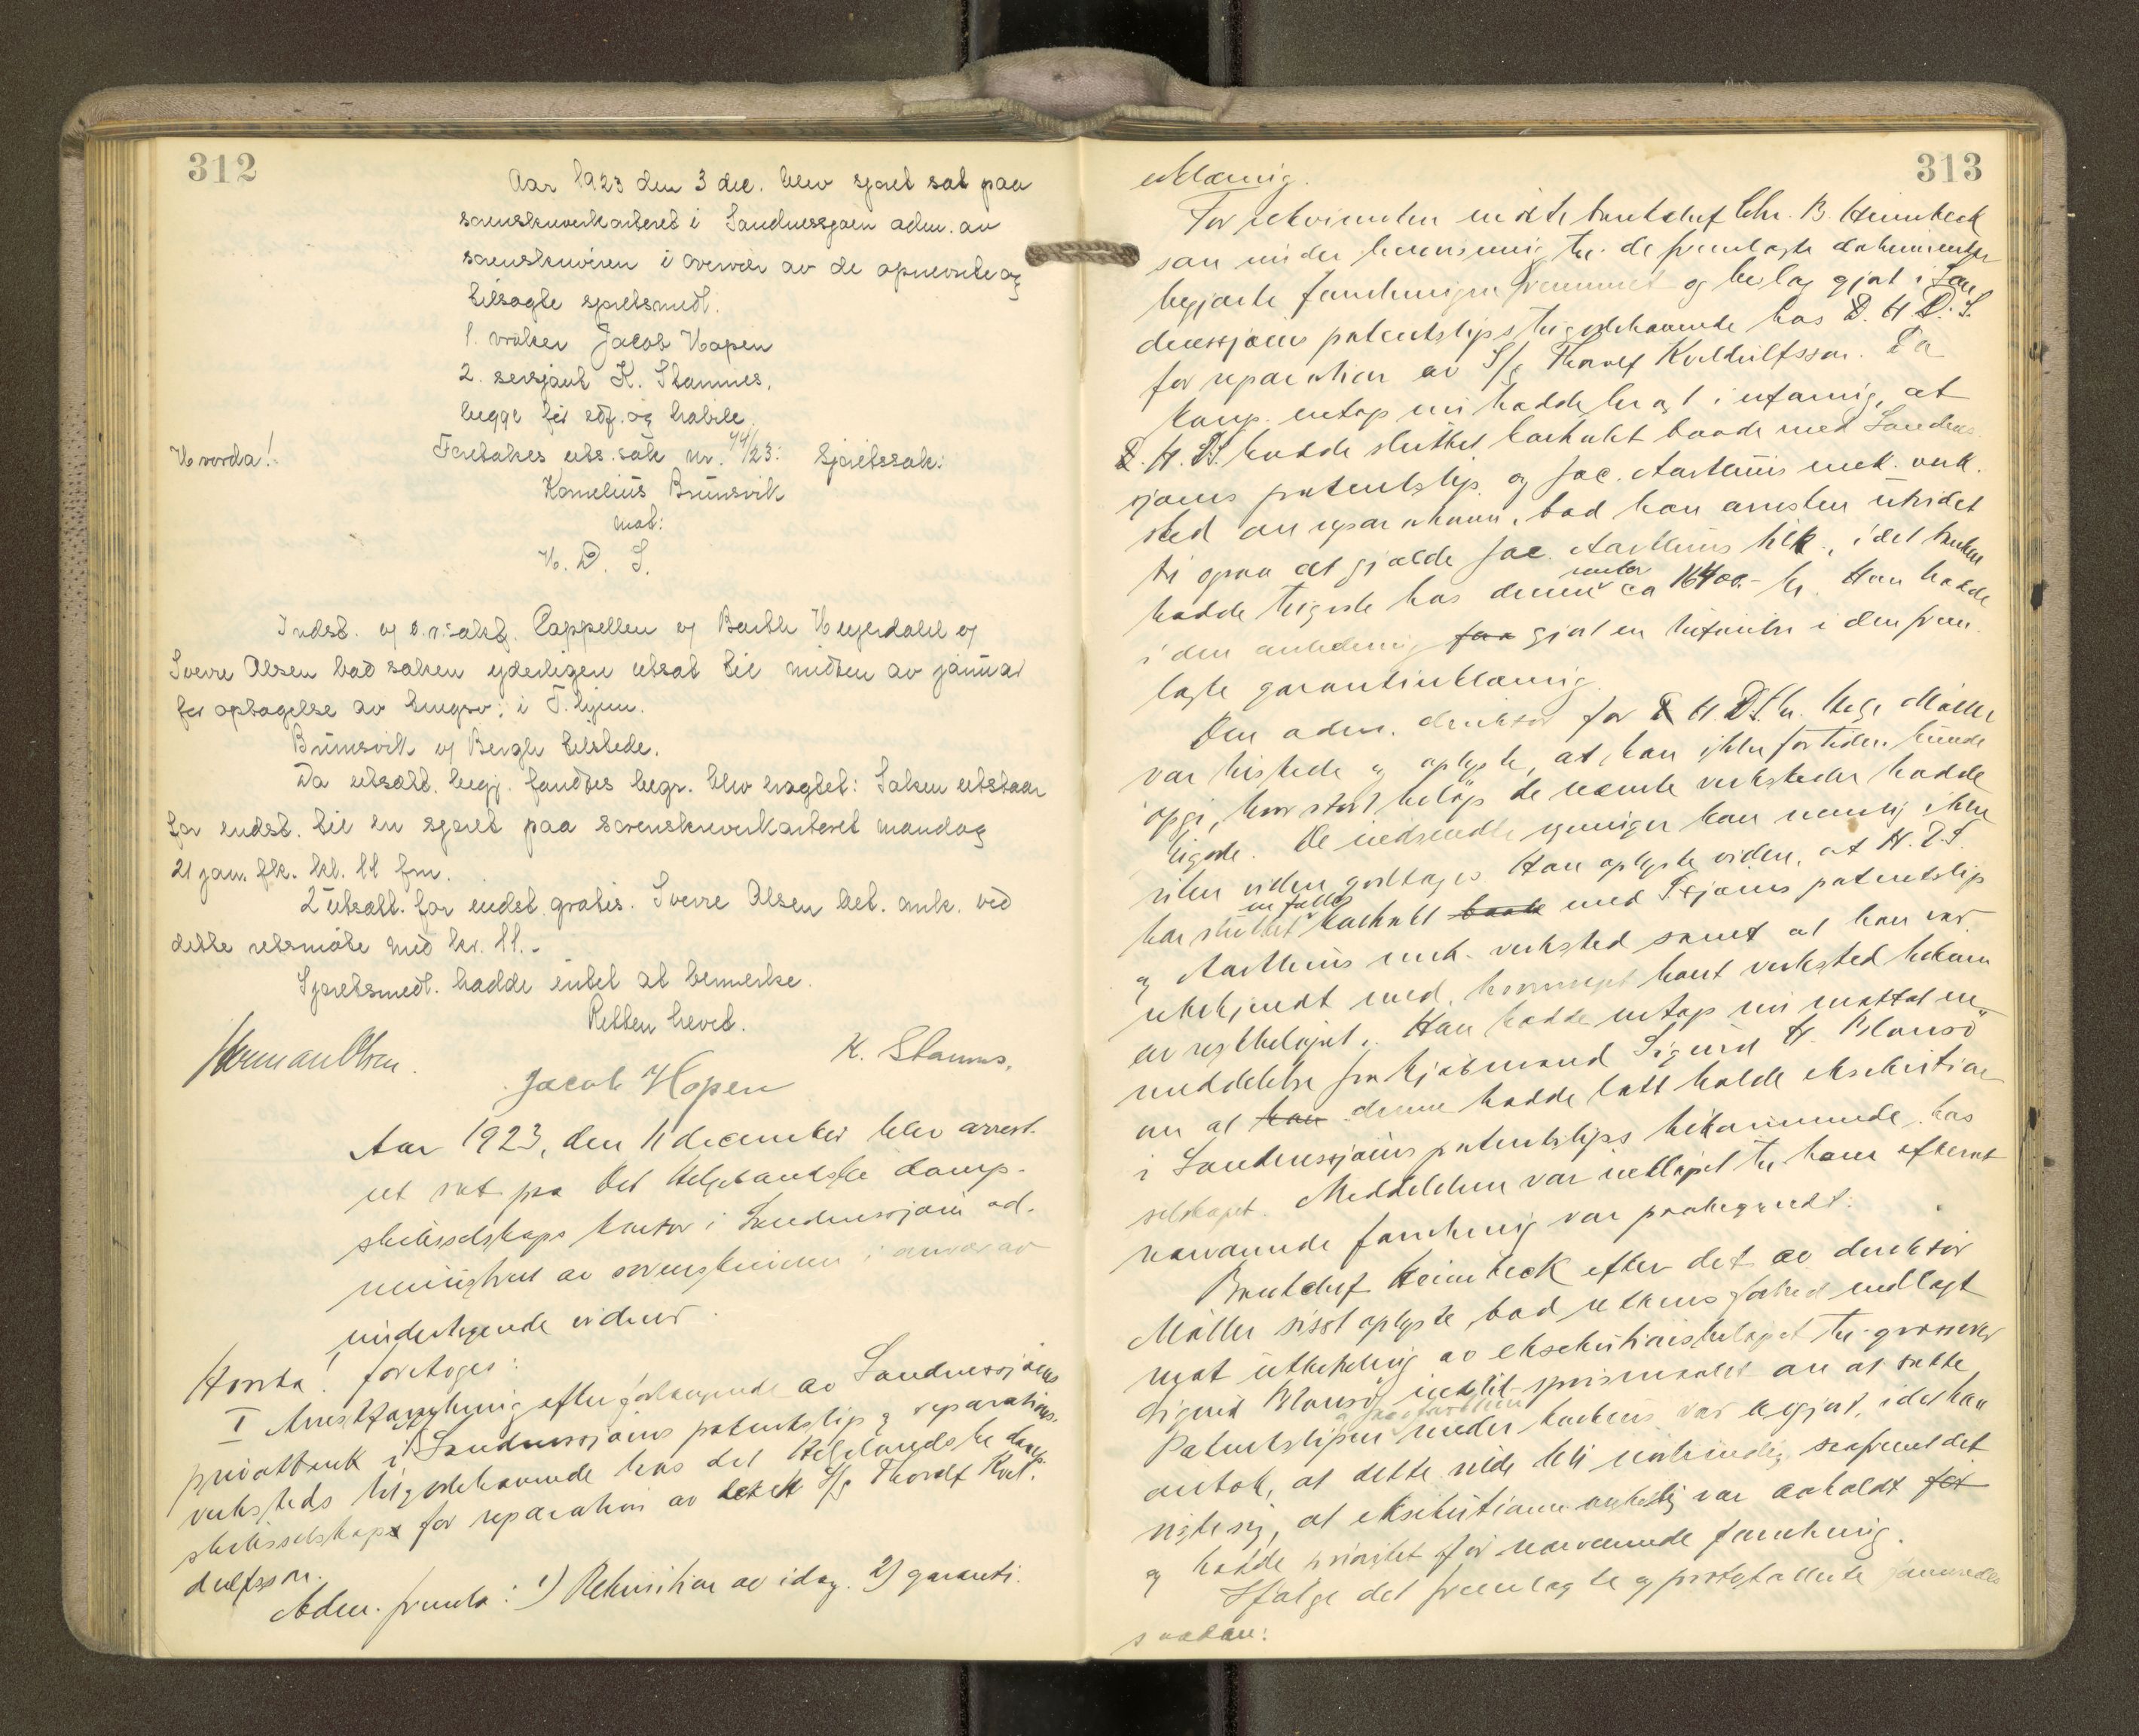 312
Aar 1923 den 3 dec. blev sjøret sat paa
sorenskriverkontoret i Sandnessjøen adm. av
sorenskriveren i overvær av de opnevnte og
tilsagte sjøretsmedl.
1. vraker Jacob Hopen
2. sersjant K. Stamnes,
begge før edf. og habile.
Hvorda! Foretokes uts. sak nr. 44/23: Sjøretssak:
Kornelius Brunsvik
mot:
H. D. S.
Indst. og o.r.sakf. Cappellen og Barth Heyerdahl og
Sverre Olsen bad saken yderligere utsat til midten av januar
for optagelse av tingsv. i T.hjem.
Brunsvik og Bergh tilstede.
Da utsætt. begj. fandtes begr. blev eragtet: Saken utstaar
for indst. til en sjøret paa sorenskriverkontoret mandag
21 jan. fk. kl. 11 fm.
2 utsætt. for indst. gratis. Sverre Olsen bet. ank. ved
dette retsmøte med kr. 11.-
Sjøretsmedl. hadde intet at bemerke.
Retten hevet.
Herman Olsen.
Jacob Hopen
K. Stamnes.
Aar 1923, den 11 december blev arrest-
ret sat paa Det Helgelandske damp-
skibsselskaps kontor i Sandnessjøen ad-
ministrert av sorenskriveren i overvær av
undertegnede vidner.
Hvorda! foretoges:
I Arrestforretning efter forlangende av Sandnessjøens
privatbank i Sandnessjøens patentslip & reparations-
verksteds tilgodehavende hos det Helgelandske damp-
skibsselskap for reparation av S/S Thorolf Kvel-
dulfsson.
Adm. fremla: 1) Rekvisition av idag. 2) garanti-
313
erklæring.
For rekvirenten møtte bankchef Chr. B. Heimbeck
som under henvisning til de fremlagte dokumenter
begjærte forretningen fremmet og beslag gjort i San-
dnessjøens patentslips tilgodehavende hos D. H. D. S.
for reparation av S/S Thorolf Kveldulfsson. Da
komp. netop nu hadde bragt i erfaring, at
D. H. D. S. hadde sluttet kontrakt baade med Sandnes-
sjøens patentslip og Jac. Aarthuns mek. verk-
sted om reparationen, bad han arresten utvidet
til ogsaa at gjælde Jac. Aarthuns tilk., idet banken
hadde tilgode hos denne ca 16400.- kr. Han hadde
i den anledning gjort en tilføielse i den frem-
lagte garantierklæring.
Den adm. direktør for D. H. D. S. hr. Møller
var tilstede og oplyste, at han ikke for tiden kunde
opgi, hvor stort beløp de nævnte verksteder hadde
tilgode. De indsendte regninger kan nemlig ikke
uten viden godtages. Han oplyste viden, at H. D. S.
har sluttet en fælles kontrakt med S.sjøens patentslip
og Aarthuns mek. verksted samt at han var
ubekjendt med, hvormeget hvert verksted bekom
av restbeløpet. Han hadde netop nu mottat en
meddelelse fra kjøbmand Sigurd H. Blomsø
om at denne hadde latt holde eksekution
i Sandnessjøens patentslips tilkommende hos
selskapet. Meddelelsen var indløpet til ham efterat
nærværende forretning var paabegyndt.
Bankchef Heimbeck efter det av direktør
Møller sisst oplyste, bad rettens forbud nedlagt
mot utbetaling av eksekutionsbeløpet til grosserer
Sigurd Blomsø indtil spørsmaalet om at sætte
Patentslipen under konkurs var avgjort, idet han
antok, at dette vilde bli nødvendig, saafremt det
viste sig, at eksekutionen virkelig var avholdt
og hadde prioritet for nærværende forretning.
Ifølge det fremlagte og protokollerte
saadan: